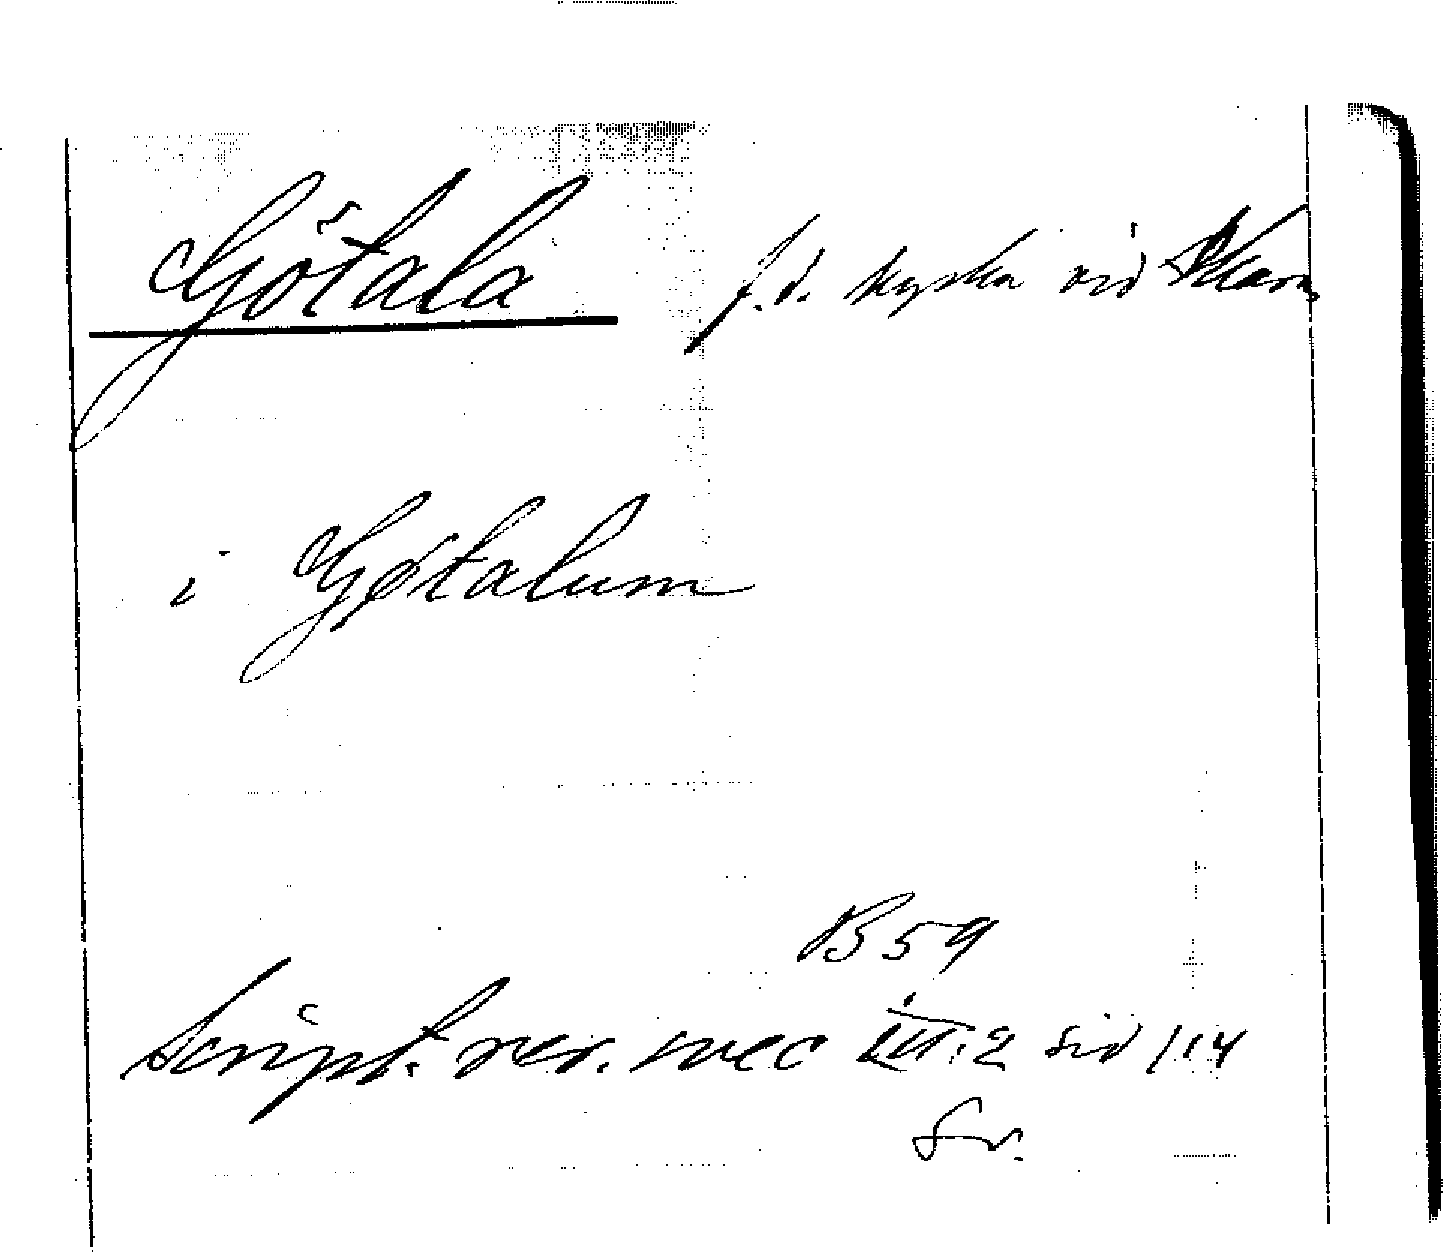 Götala f.d. kyrka vid Skara
i Gøtalum
B 59
Script. rer. svec III:2 sid 114
Sv.